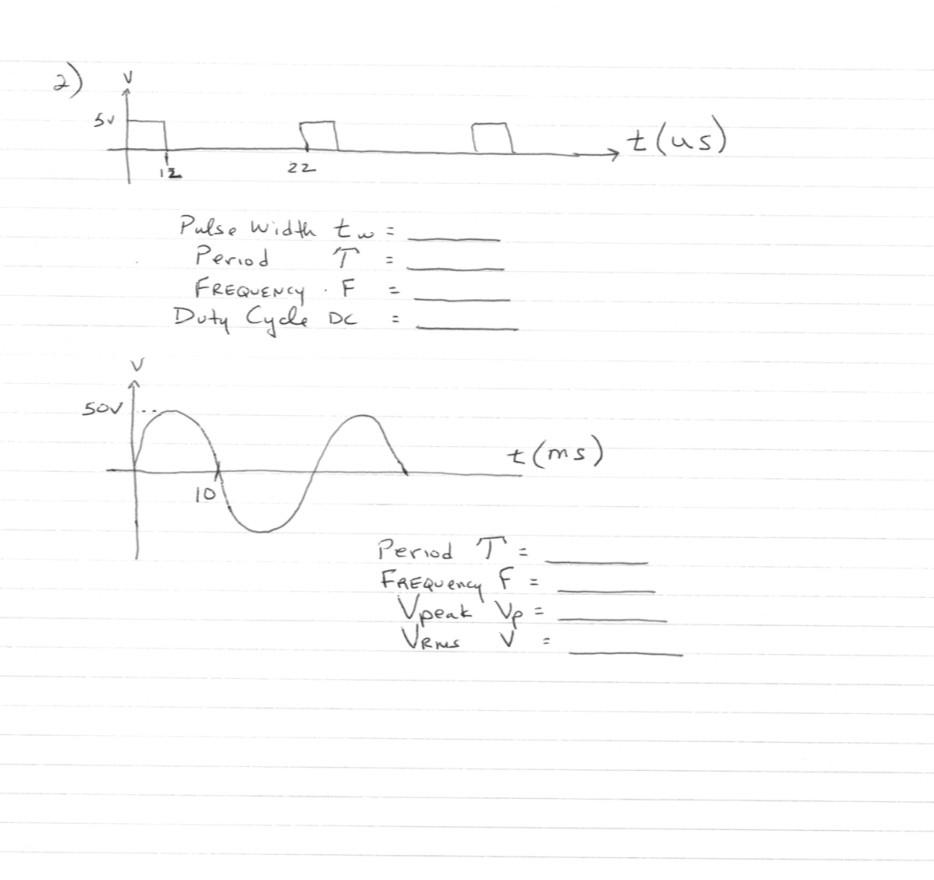 2)
V
5v
t(us)
12
22
Pulse Width tw = ______
Period T = ______
FREQUENCY · F = ______
Duty Cycle DC = ______
V
50V
t(ms)
10
Period T = ______
FREQUENCY F = ______
Vpeak Vp = ______
VRms V = ______